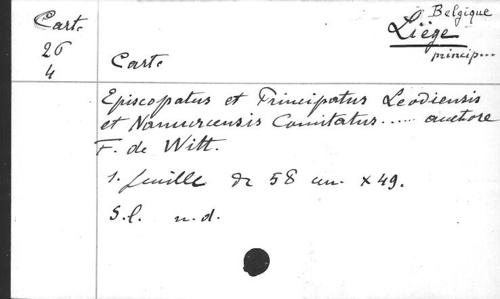 Carte
26
4
Belgique
Liège
princip...
Carte
Episcopatus et Principatus Leodiensis
et Namurcensis Comitatus...... auctore
F. de Witt.
1. feuille de 58 cm. x 49.
S.l. n.d.